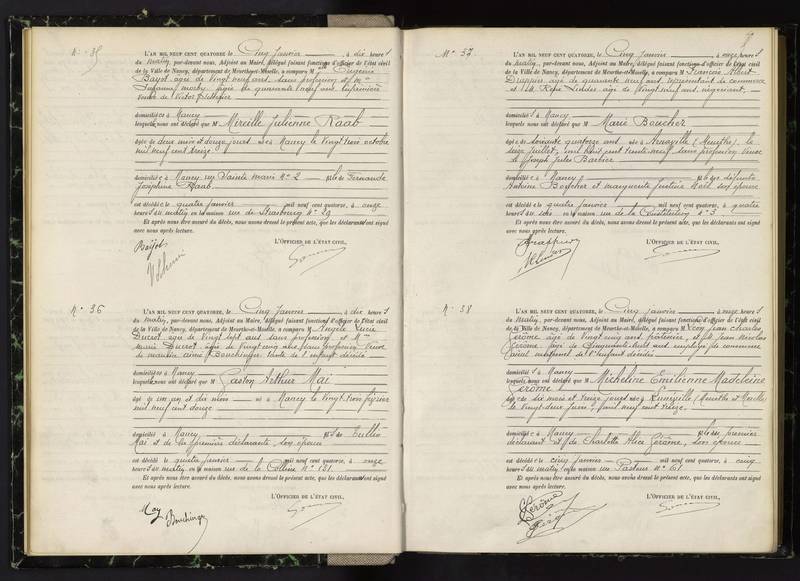 N° 35
L'AN MIL NEUF CENT QUATORZE, le Cinq Janvier à dix heures
du matin, par-devant nous, Adjoint au Maire, délégué faisant fonctions d'officier de l'état civil
de la Ville de Nancy, département de Meurthe-et-Moselle, a comparu M Eugénie
Bayot âgée de vingt neuf ans, sans profession et M
âgée de quarante ans
veuve de Victor
domiciliées à Nancy
lesquelles nous ont déclaré que M Mireille Julienne Raab
âgée de deux mois et douze jours née à Nancy le vingt trois octobre
mil neuf cent treize
domiciliée à Nancy rue Sainte Marie N° 2 fille de Fernande
Joséphine Raab
est décédée le quatre janvier mil neuf cent quatorze, à onze
heures du matin en la maison rue de Strasbourg N° 29
Et après nous être assuré du décès, nous avons dressé le présent acte, que les déclarants ont signé
avec nous après lecture.
L'OFFICIER DE L'ÉTAT CIVIL,
Bayot
N° 36
L'AN MIL NEUF CENT QUATORZE, le Cinq Janvier à dix heures
du matin, par-devant nous, Adjoint au Maire, délégué faisant fonctions d'officier de l'état civil
de la Ville de Nancy, département de Meurthe-et-Moselle, a comparu M Angèle Lucie
Ducrot âgée de vingt sept ans sans profession et M
Marie Ducrot âgée de vingt cinq ans sans profession
tante de l'enfant décédé
domiciliées à Nancy
lesquelles nous ont déclaré que M Gaston Arthur Mai
âgé de un an et dix mois né à Nancy le vingt trois février
mil neuf cent douze
domicilié à Nancy fils de Tullio
Mai et de la première déclarante, son épouse
est décédé le quatre janvier mil neuf cent quatorze, à onze
heures du matin en la maison rue de la Colline N° 131
Et après nous être assuré du décès, nous avons dressé le présent acte, que les déclarants ont signé
avec nous après lecture.
L'OFFICIER DE L'ÉTAT CIVIL,
May
N° 37
L'AN MIL NEUF CENT QUATORZE, le Cinq Janvier à onze heures
du matin, par-devant nous, Adjoint au Maire, délégué faisant fonctions d'officier de l'état civil
de la Ville de Nancy, département de Meurthe-et-Moselle, a comparu M François Albert
âgé de quarante neuf ans, représentant de commerce
et M René Linder âgé de vingt neuf ans négociant
domiciliés à Nancy
lesquels nous ont déclaré que M Marie Boucher
âgée de soixante quatorze ans née à Arnaville (Meurthe), le
seize juillet mil huit cent trente neuf sans profession veuve
de Joseph Jules Barbier
domiciliée à Nancy fille de défunts
Antoine Boucher et Marguerite son épouse
est décédée le quatre janvier mil neuf cent quatorze, à quatre
heures du soir en la maison rue de la Constitution N° 3
Et après nous être assuré du décès, nous avons dressé le présent acte, que les déclarants ont signé
avec nous après lecture.
L'OFFICIER DE L'ÉTAT CIVIL,
N° 38
L'AN MIL NEUF CENT QUATORZE, le Cinq Janvier à onze heures
du matin, par-devant nous, Adjoint au Maire, délégué faisant fonctions d'officier de l'état civil
de la Ville de Nancy, département de Meurthe-et-Moselle, a comparu M Léon Jean Charles
Gérôme âgé de vingt cinq ans, et M Jean Nicolas
Gérôme âgé de cinquante ans employé de commerce
aïeul maternel de l'enfant décédé
domiciliés à Nancy
lesquels nous ont déclaré que M Micheline Emilienne Madeleine
Gérôme
âgée de dix mois et treize jours née à Lunéville (Meurthe et Moselle)
le vingt deux mil neuf cent treize
domiciliée à Nancy fille du premier
déclarant et de Charlotte Alice Gérôme, son épouse
est décédée le cinq janvier mil neuf cent quatorze, à cinq
heures du matin en la maison rue Pasteur N° 61
Et après nous être assuré du décès, nous avons dressé le présent acte, que les déclarants ont signé
avec nous après lecture.
L'OFFICIER DE L'ÉTAT CIVIL,
Gérôme